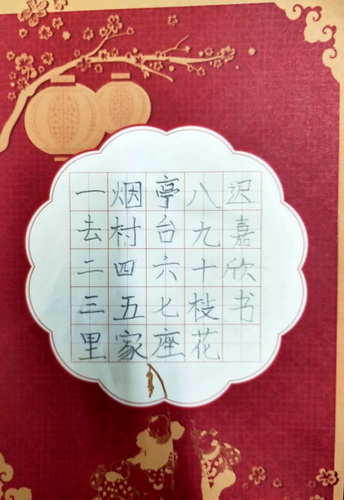 一去二三里
烟村四五家
亭台六七座
八九十枝花
迟嘉欣书